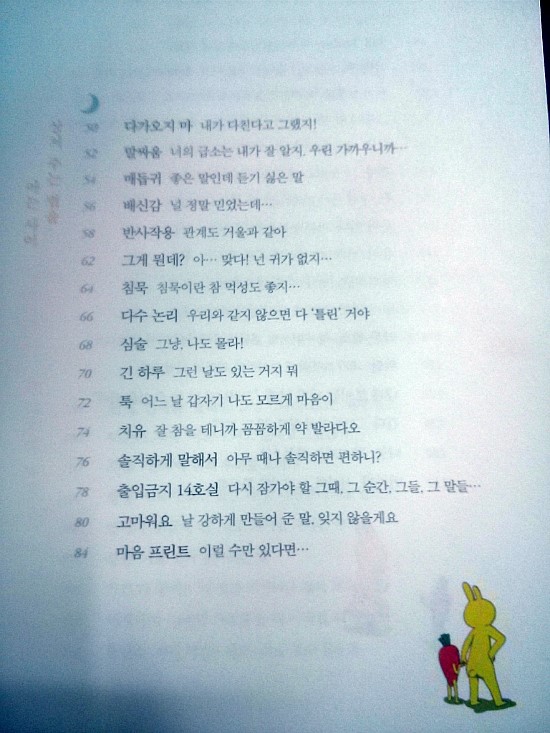 50 다가오지 마 내가 다친다고 그랬지!
52 말싸움 너의 급소는 내가 잘 알지. 우린 가까우니까…
54 매듭귀 좋은 말인데 듣기 싫은 말
56 배신감 널 정말 믿었는데…
58 반사작용 관계도 거울과 같아
62 그게 뭔데? 아… 맞다! 넌 귀가 없지…
64 침묵 침묵이란 참 먹성도 좋지…
66 다수 논리 우리와 같지 않으면 다 '틀린' 거야
68 심술 그냥, 나도 몰라!
70 긴 하루 그런 날도 있는 거지 뭐
72 툭 어느 날 갑자기 나도 모르게 마음이
74 치유 잘 참을 테니까 꼼꼼하게 약 발라다오
76 솔직하게 말해서 아무 때나 솔직하면 편하니?
78 출입금지 14호실 다시 잠가야 할 그때, 그 순간, 그들, 그 말들…
80 고마워요 날 강하게 만들어 준 말, 잊지 않을게요
84 마음 프린트 이럴 수만 있다면…